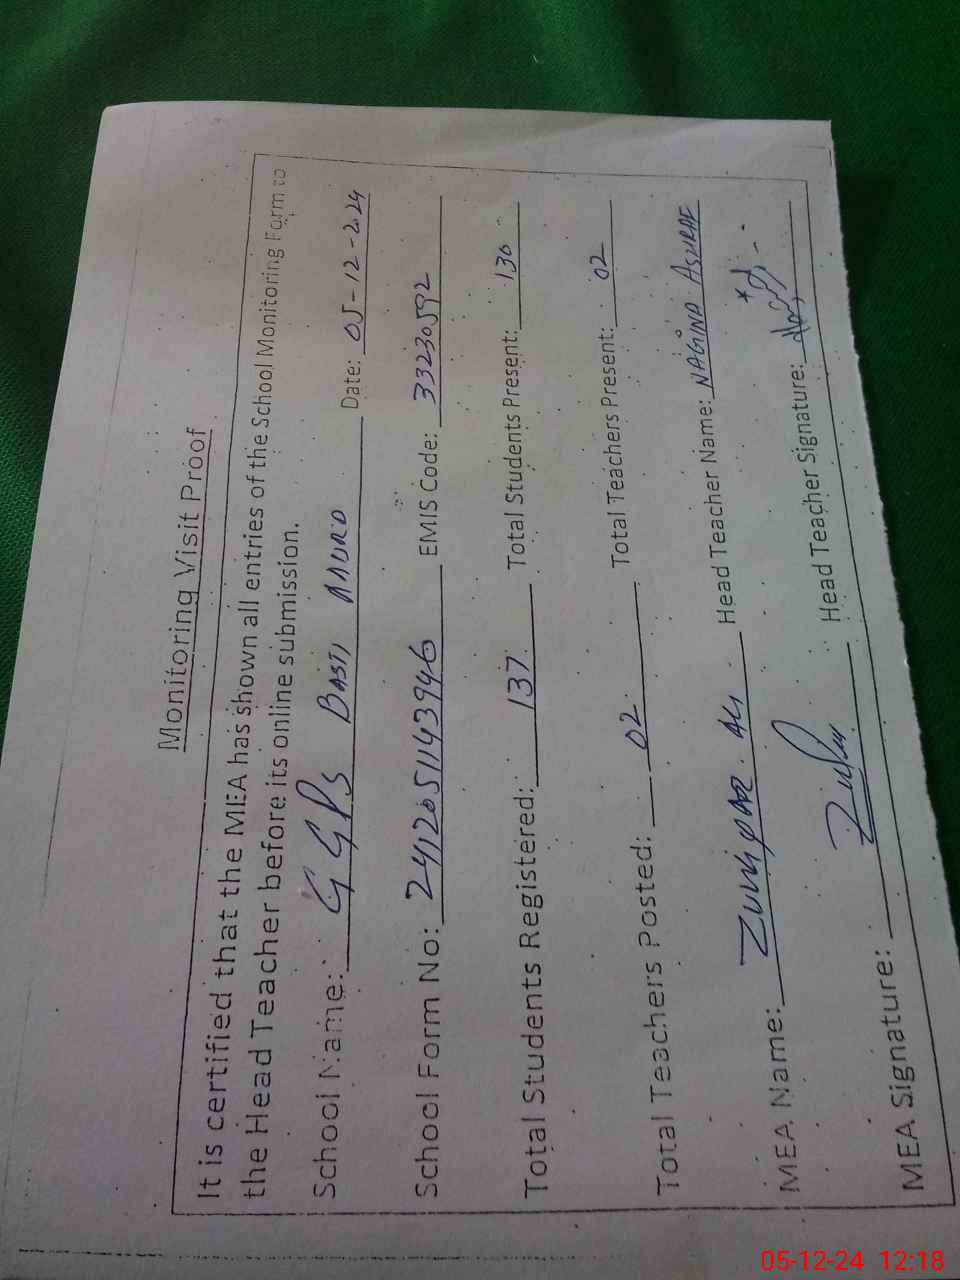 Monitoring Visit Proof
It is certified that the MEA has shown all entries of the School Monitoring Form to
the Head Teacher before its online submission.
School Name: GGPS BASTI Date: 05-12-2024
School Form No: 241205114394-6 EMIS Code: 33230592
Total Students Registered: 137 Total Students Present: 130
Total Teachers Posted: 02 Total Teachers Present: 02
MEA Name: ALI Head Teacher Name: NAGINA ASHRAF
MEA Signature: Head Teacher Signature:
05-12-24 12:18